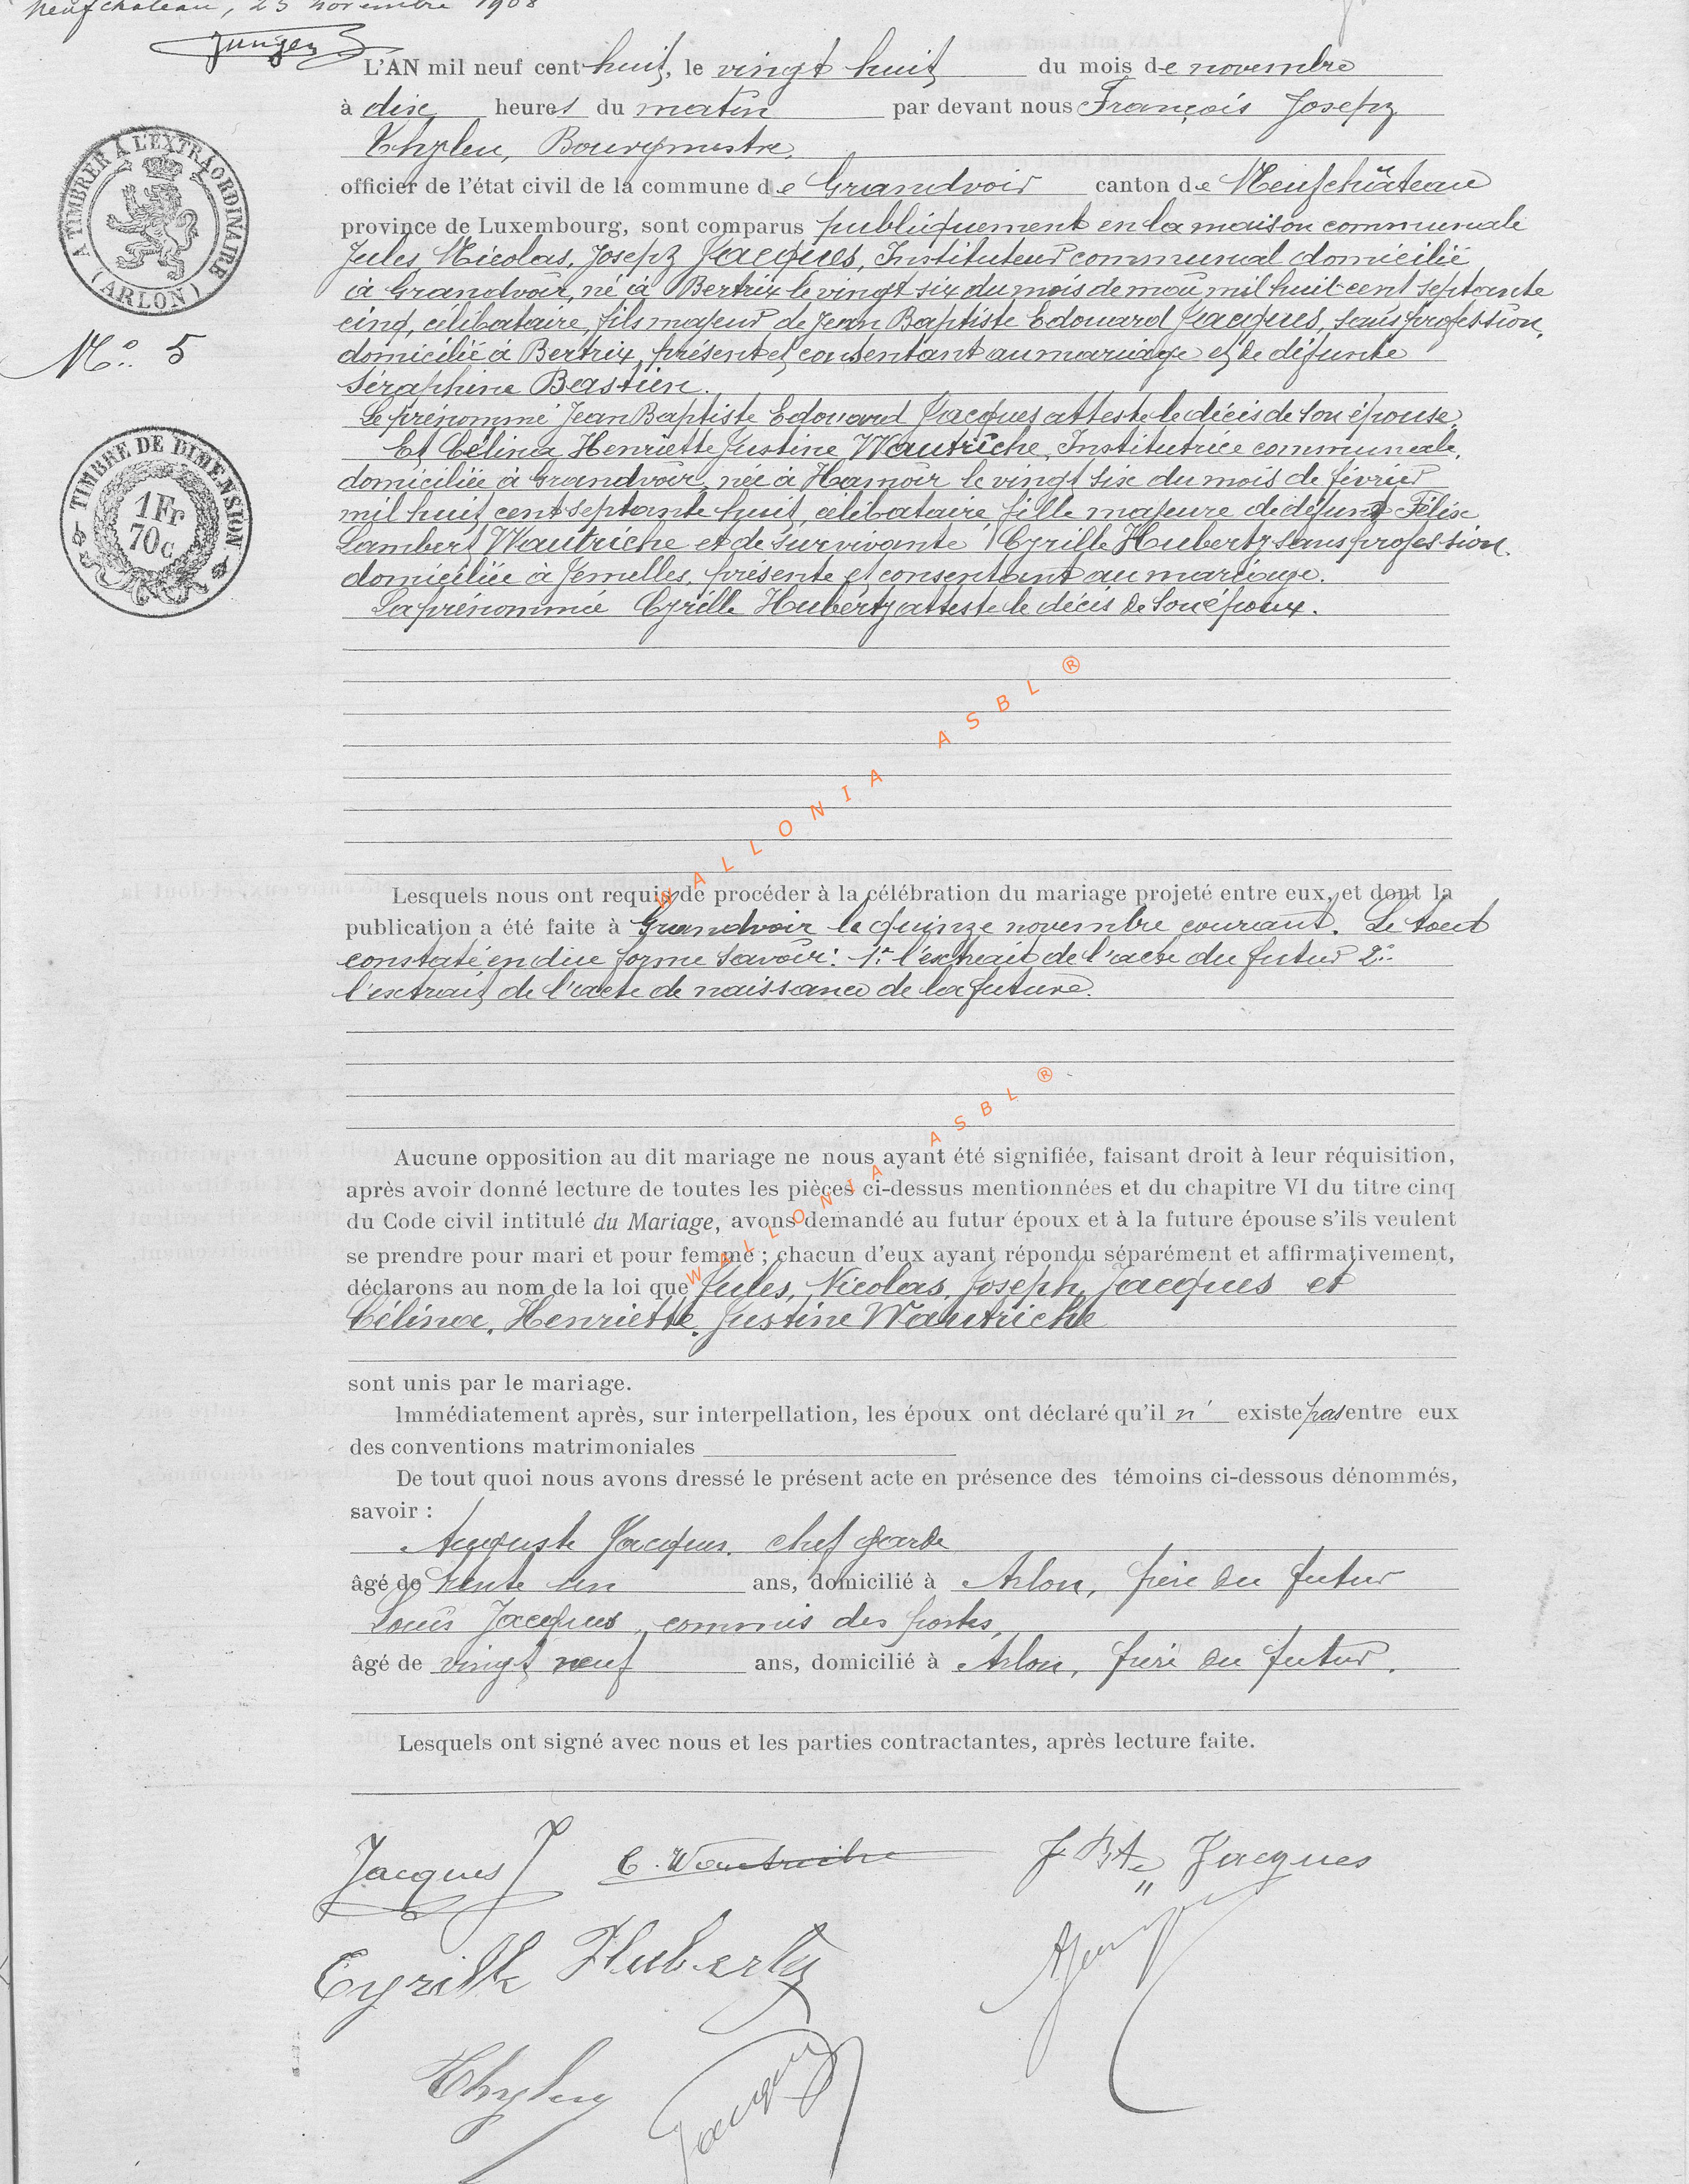 Neufchateau, 25 novembre 1908
L'AN mil neuf cent huit, le vingt huit du mois de novembre
à dix heures du matin par devant nous François Joseph
Bourgmestre,
officier de l'état civil de la commune de Grandvoir canton de Neufchâteau
province de Luxembourg, sont comparus publiquement en la maison communale
Jules, Nicolas, Joseph Jacques, Instituteur communal domicilié
à Grandvoir, né à Bertrix le vingt six du mois de mai mil huit cent septante
cinq, célibataire, fils majeur de Jean Baptiste Edouard Jacques, sans profession,
domicilié à Bertrix, présent et consentant au mariage et de défunte
Séraphine Bastien.
Le prénommé Jean Baptiste Edouard Jacques atteste le décès de son épouse.
Et Célina, Henriette Justine Wautriche, Institutrice communale,
domiciliée à Grandvoir, née à Hamoir le vingt six du mois de février
mil huit cent septante huit, célibataire, fille majeure de défunt Félix
Lambert Wautriche et de survivante Cyrille Huberty sans profession,
domiciliée à Jemelles, présente et consentant au mariage.
La prénommée Cyrille Huberty atteste le décès de son époux.
Lesquels nous ont requis de procéder à la célébration du mariage projeté entre eux, et dont la
publication a été faite à Grandvoir le quinze novembre courant. Le tout
constaté en due forme savoir: 1° l'extrait de l'acte du futur 2°
l'extrait de l'acte de naissance de la future.
Aucune opposition au dit mariage ne nous ayant été signifiée, faisant droit à leur réquisition,
après avoir donné lecture de toutes les pièces ci-dessus mentionnées et du chapitre VI du titre cinq
du Code civil intitulé du Mariage, avons demandé au futur époux et à la future épouse s'ils veulent
se prendre pour mari et pour femme ; chacun d'eux ayant répondu séparément et affirmativement,
déclarons au nom de la loi que Jules, Nicolas, Joseph, Jacques et
Célina, Henriette, Justine Wautriche
sont unis par le mariage.
Immédiatement après, sur interpellation, les époux ont déclaré qu'il n' existe pas entre eux
des conventions matrimoniales
De tout quoi nous avons dressé le présent acte en présence des témoins ci-dessous dénommés,
savoir :
Auguste Jacques, chef garde
âgé de trente un ans, domicilié à Arlon, frère du futur
Louis Jacques, commis des postes,
âgé de vingt neuf ans, domicilié à Arlon, frère du futur.
Lesquels ont signé avec nous et les parties contractantes, après lecture faite.
Jacques J C. Wautriche J. Bte Jacques
Cyrille Huberty
Jacques
A TIMBRER A L'EXTRAORDINAIRE
(ARLON)
N° 5
TIMBRE DE DIMENSION
1 Fr
70 c
WALLONIA ASBL ®
WALLONIA ASBL ®